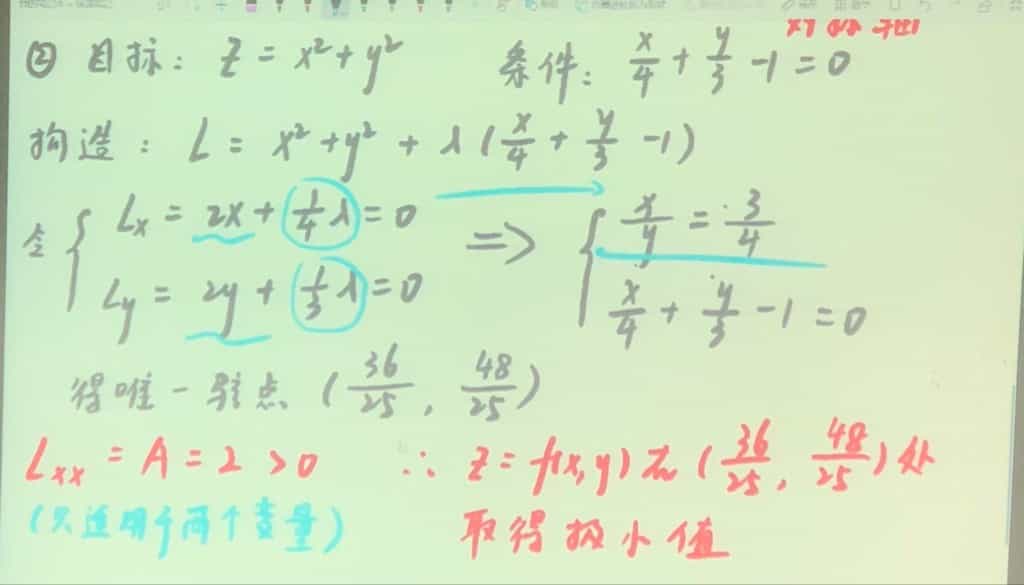 ② 目标: Z = x² + y² 条件: x/4 + y/3 - 1 = 0
构造: L = x² + y² + λ(x/4 + y/3 - 1)
令 { Lx = 2x + 1/4 λ = 0 => { x/y = 3/4
Ly = 2y + 1/3 λ = 0 x/4 + y/3 - 1 = 0
得唯一驻点 (36/25, 48/25)
Lxx = A = 2 > 0 ∴ z = f(x,y) 在 (36/25, 48/25) 处
(只适用于两个变量) 取得极小值